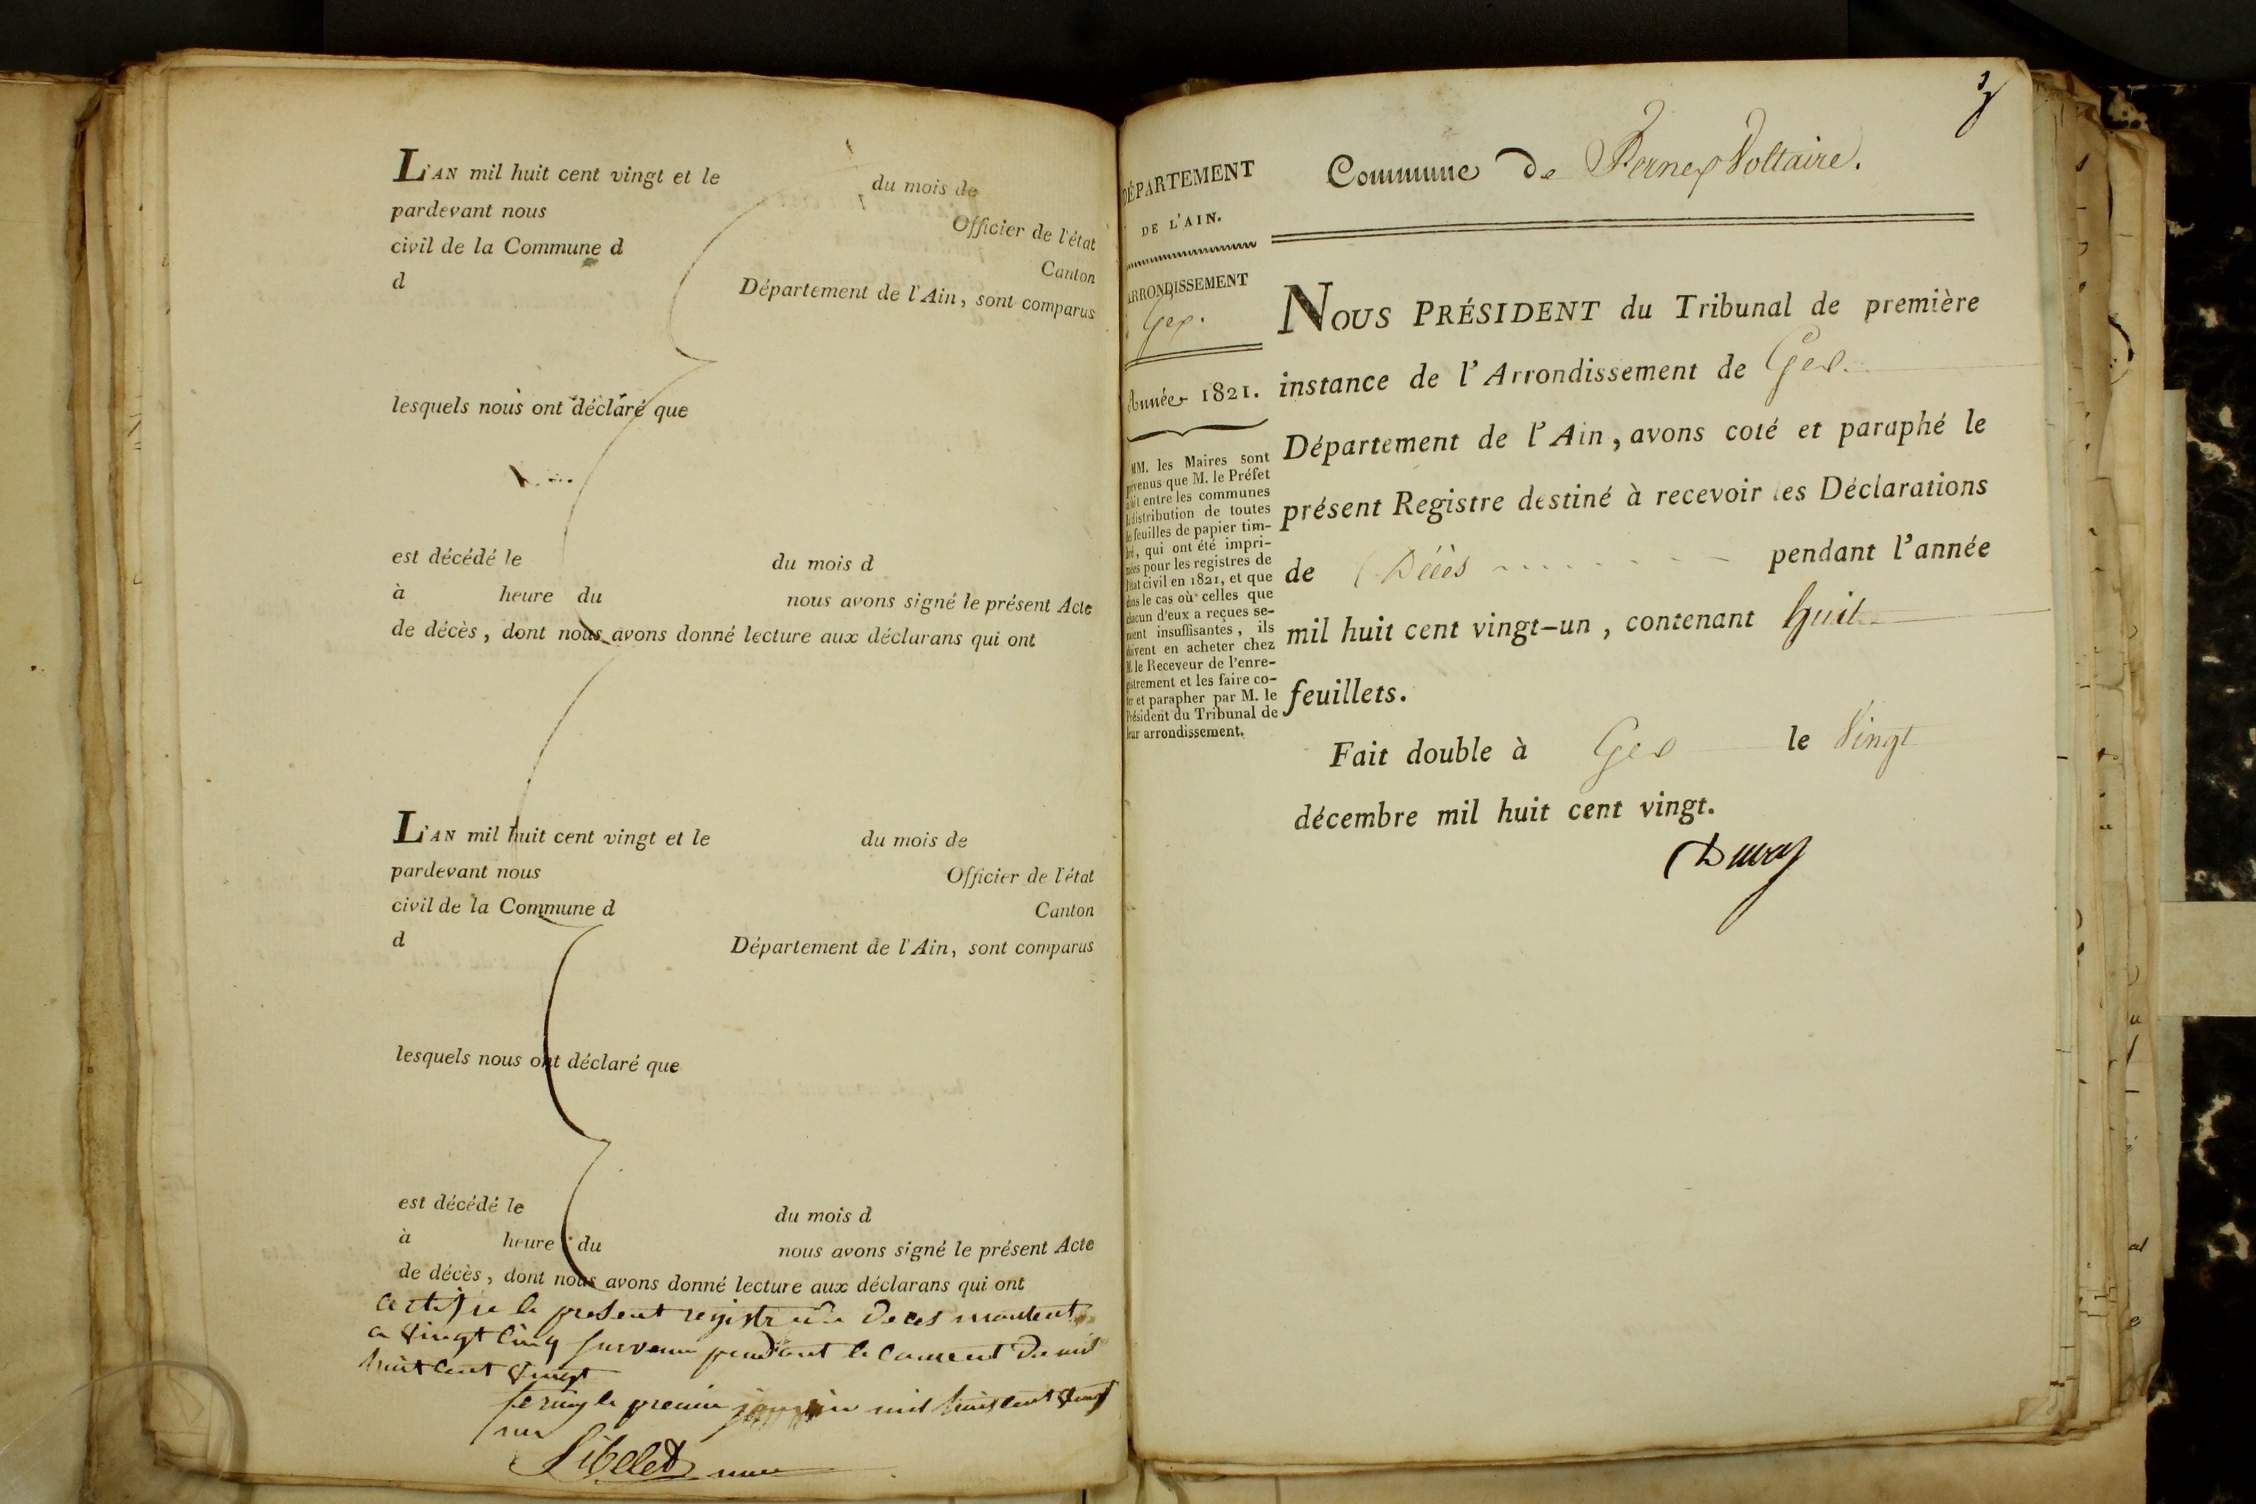 L'AN mil huit cent vingt et le du mois de
pardevant nous Officier de l'état
civil de la Commune d Canton
d Département de l'Ain, sont comparus
lesquels nous ont déclaré que
est décédé le du mois d
à heure du nous avons signé le présent Acte
de décès, dont nous avons donné lecture aux déclarans qui ont
L'AN mil huit cent vingt et le du mois de
pardevant nous Officier de l'état
civil de la Commune d Canton
d Département de l'Ain, sont comparus
lesquels nous ont déclaré que
est décédé le du mois d
à heure du nous avons signé le présent Acte
de décès, dont nous avons donné lecture aux déclarans qui ont
le present registre de deces montent
a vingt cinq pendant le courent de mil
huit cent vingt
le premier mil huit cent vingt
Commune de Fernex Voltaire.
DÉPARTEMENT
DE L'AIN.
ARRONDISSEMENT
Gex.
Année 1821.
MM. les Maires sont
prévenus que M. le Préfet
a fait entre les communes
la distribution de toutes
les feuilles de papier tim-
bré, qui ont été impri-
mées pour les registres de
l'état civil en 1821, et que
dans le cas où celles que
chacun d'eux a reçues se-
roient insuffisantes, ils
doivent en acheter chez
M. le Receveur de l'enre-
gistrement et les faire co-
ter et parapher par M. le
Président du Tribunal de
leur arrondissement.
NOUS PRÉSIDENT du Tribunal de première
instance de l'Arrondissement de Gex.
Département de l'Ain, avons coté et paraphé le
présent Registre destiné à recevoir les Déclarations
de Décès pendant l'année
mil huit cent vingt-un, contenant huit
feuillets.
Fait double à Gex le Vingt
décembre mil huit cent vingt.